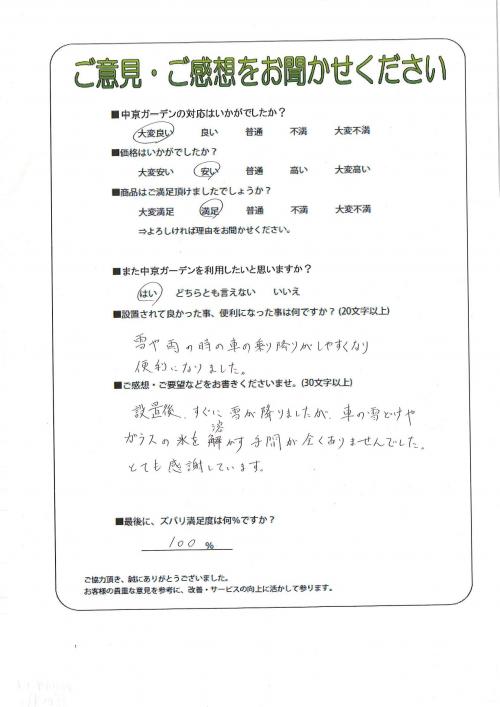 ご意見・ご感想をお聞かせください
■中京ガーデンの対応はいかがでしたか？
大変良い 良い 普通 不満 大変不満
■価格はいかがでしたか？
大変安い 安い 普通 高い 大変高い
■商品はご満足頂けましたでしょうか？
大変満足 満足 普通 不満 大変不満
⇒よろしければ理由をお聞かせください。
■また中京ガーデンを利用したいと思いますか？
はい どちらとも言えない いいえ
■設置されて良かった事、便利になった事は何ですか？(20文字以上)
雪や雨の時の車の乗り降りがしやすくなり
便利になりました。
■ご感想・ご要望などをお書きくださいませ。(30文字以上)
設置後、すぐに雪が降りましたが、車の雪どけや
溶
ガラスの氷を解かす手間が全くありませんでした。
とても感謝しています。
■最後に、ズバリ満足度は何％ですか？
100 %
ご協力頂き、誠にありがとうございました。
お客様の貴重な意見を参考に、改善・サービスの向上に活かして参ります。